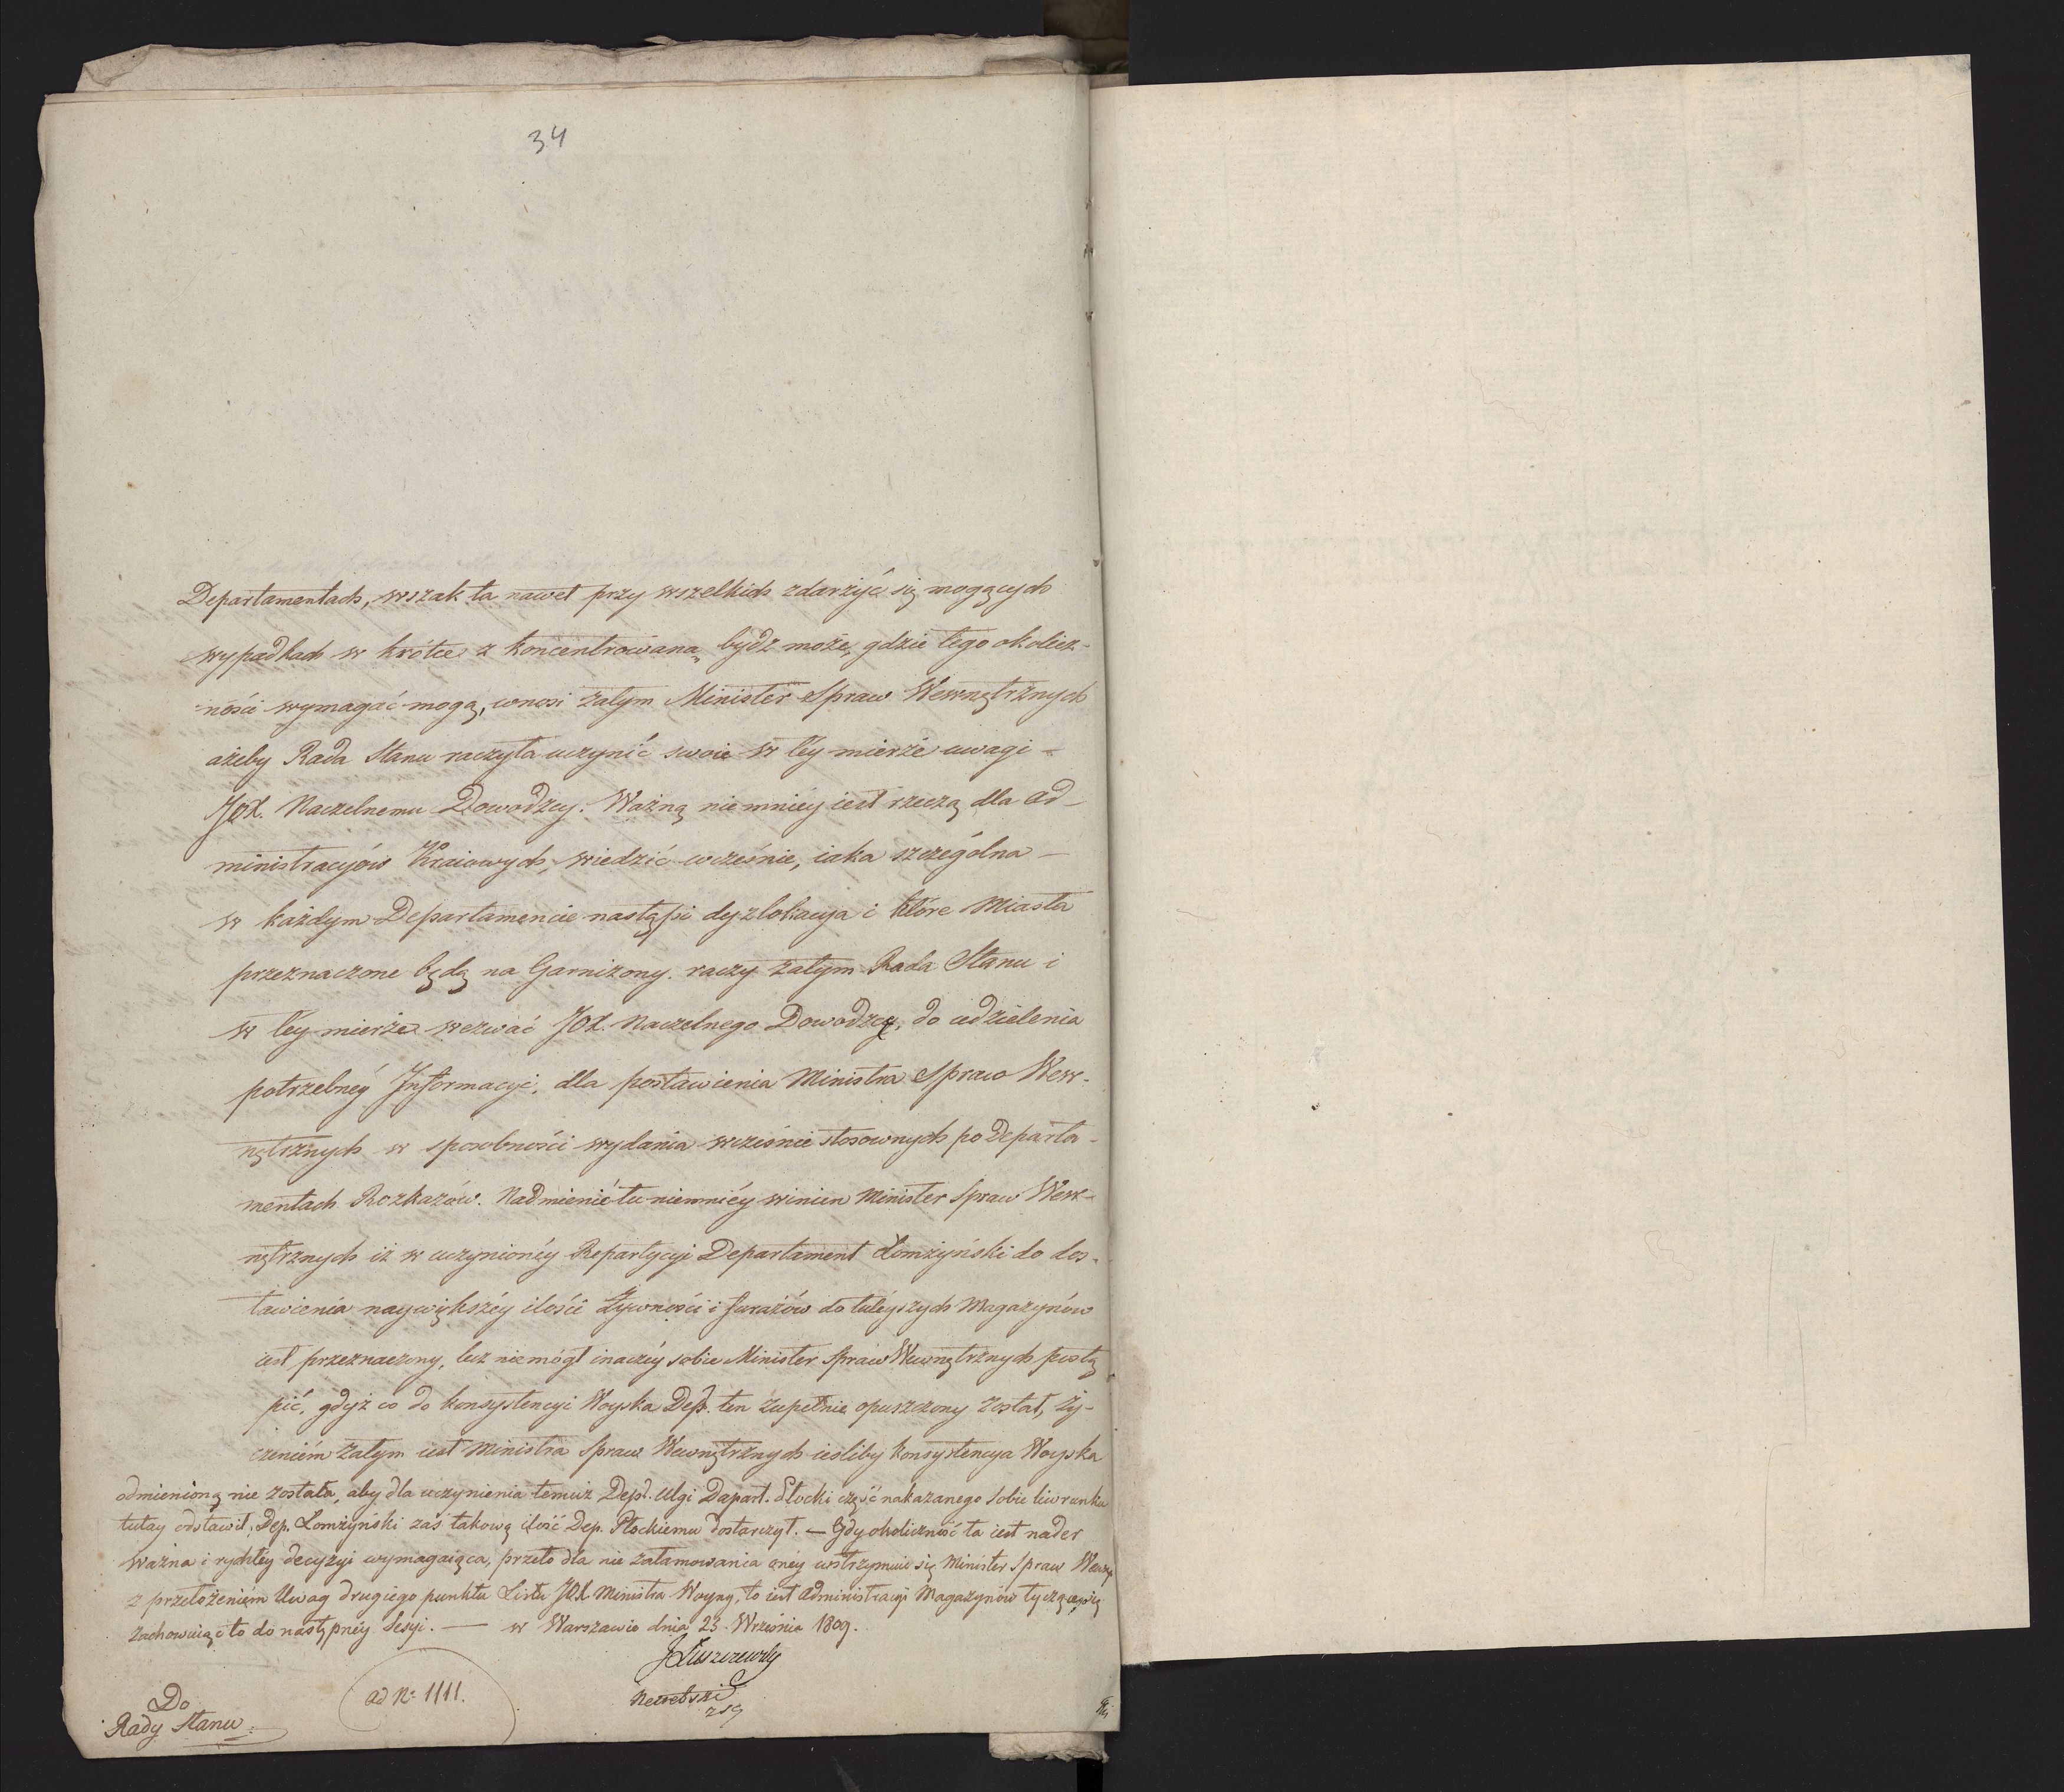 34
Departamentach, wszak ta nawet przy wszelkich zdarzyć się mogących
wypadkach w krótce z koncentrowaną bydź może, gdzie tego okolicz-
-ności wymagać mogą, wnosi zatym Minister Spraw Wewnętrznych
ażeby Rada Stanu raczyła uczynić swoie w téy mierze uwagi -
JOX. Naczelnemu Dowodzcy. Ważną niemniéy iest rzeczą dla Ad-
ministracyów Kraiowych, wiedzić wcześnie, iaka szczególna -
w każdym Departamencie nastąpi dyzlokacya i które Miasta
przeznaczone będą na Garnizony. raczy zatym Rada Stanu i
w téy mierze wezwać JOX. Naczelnego Dowodzcę, do udzielenia
potrzebnéy Informacyi, dla postawienia Ministra Spraw Wew-
nętrznych w sposobności wydania wcześnie stosownych po Departa-
mentach Rozkazów. Nadmienić tu niemniéy winien Minister Spraw Wew-
nętrznych iż w uczynionéy Repartycyi Departament Łomżyński do dos-
tawienia naywiększéy ilości Żywności i furażów do tuteyszych Magazynów
iest przeznaczony, lecz niemógł inaczéy sobie Minister Spraw Wewnętrznych postą
pić, gdyż co do konsystencyi Woyska Dep. ten zupełnie opuszczony został, ży-
czeniém zatym iest Ministra Spraw Wewnętrznych ieśliby konsystencya Woyska
odmienioną nie została, aby dla uczynienia temuż Dept. Ulgi Depart. Płocki część nakazanego sobie liwerunku
tutay odstawił, Dep. Łomżyński zaś takową ilość Dep. Płockiemu dostarczył. — Gdy okoliczność ta iest nader
ważna i rychłéy decyzyi wymagaiąca, przeto dla nie zatamowania onéy wstrzymuie się Minister Spraw Wewnę
z przełożeniém Uwag drugiego punktu Listu JOX Ministra Woyny, to iest Administracyi Magazynów tyczącego się
zachowuiąc to do następnéy Sesyi. — w Warszawie dnia 23. Września 1809.
JŁuszczewsky
Do
Rady Stanu.
ad No: 1111.